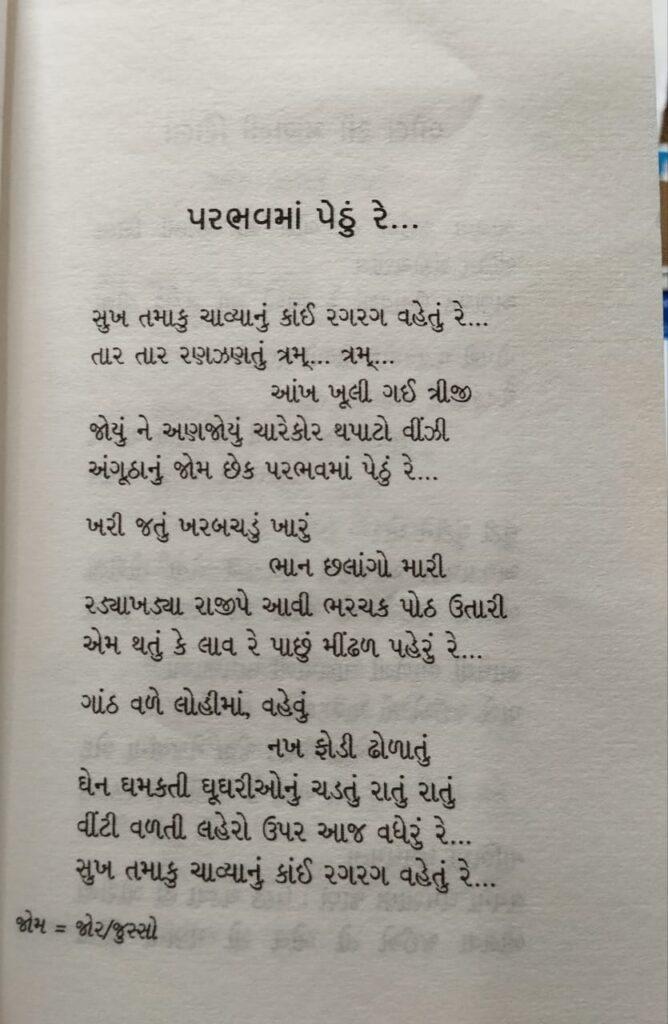 પરભવમાં પેઠું રે...
સુખ તમાકુ ચાવ્યાનું કાંઈ રગરગ વહેતું રે...
તાર તાર રણઝણતું ત્રમ્... ત્રમ્...
આંખ ખૂલી ગઈ ત્રીજી
જોયું ને અણજોયું ચારેકોર થપાટો વીંઝી
અંગૂઠાનું જોમ છેક પરભવમાં પેઠું રે...
ખરી જતું ખરબચડું ખારું
ભાન છલાંગો મારી
રડ્યાખડ્યા રાજીપે આવી ભરચક પોઠ ઉતારી
એમ થતું કે લાવ રે પાછું મીંઢળ પહેરું રે...
ગાંઠ વળે લોહીમાં, વહેવું
નખ ફોડી ઢોળાતું
ઘેન ઘમકતી ઘૂઘરીઓનું ચડતું રાતું રાતું
વીંટી વળતી લહેરો ઉપર આજ વધેરું રે...
સુખ તમાકુ ચાવ્યાનું કાંઈ રગરગ વહેતું રે...
જોમ = જોર/જુસ્સો